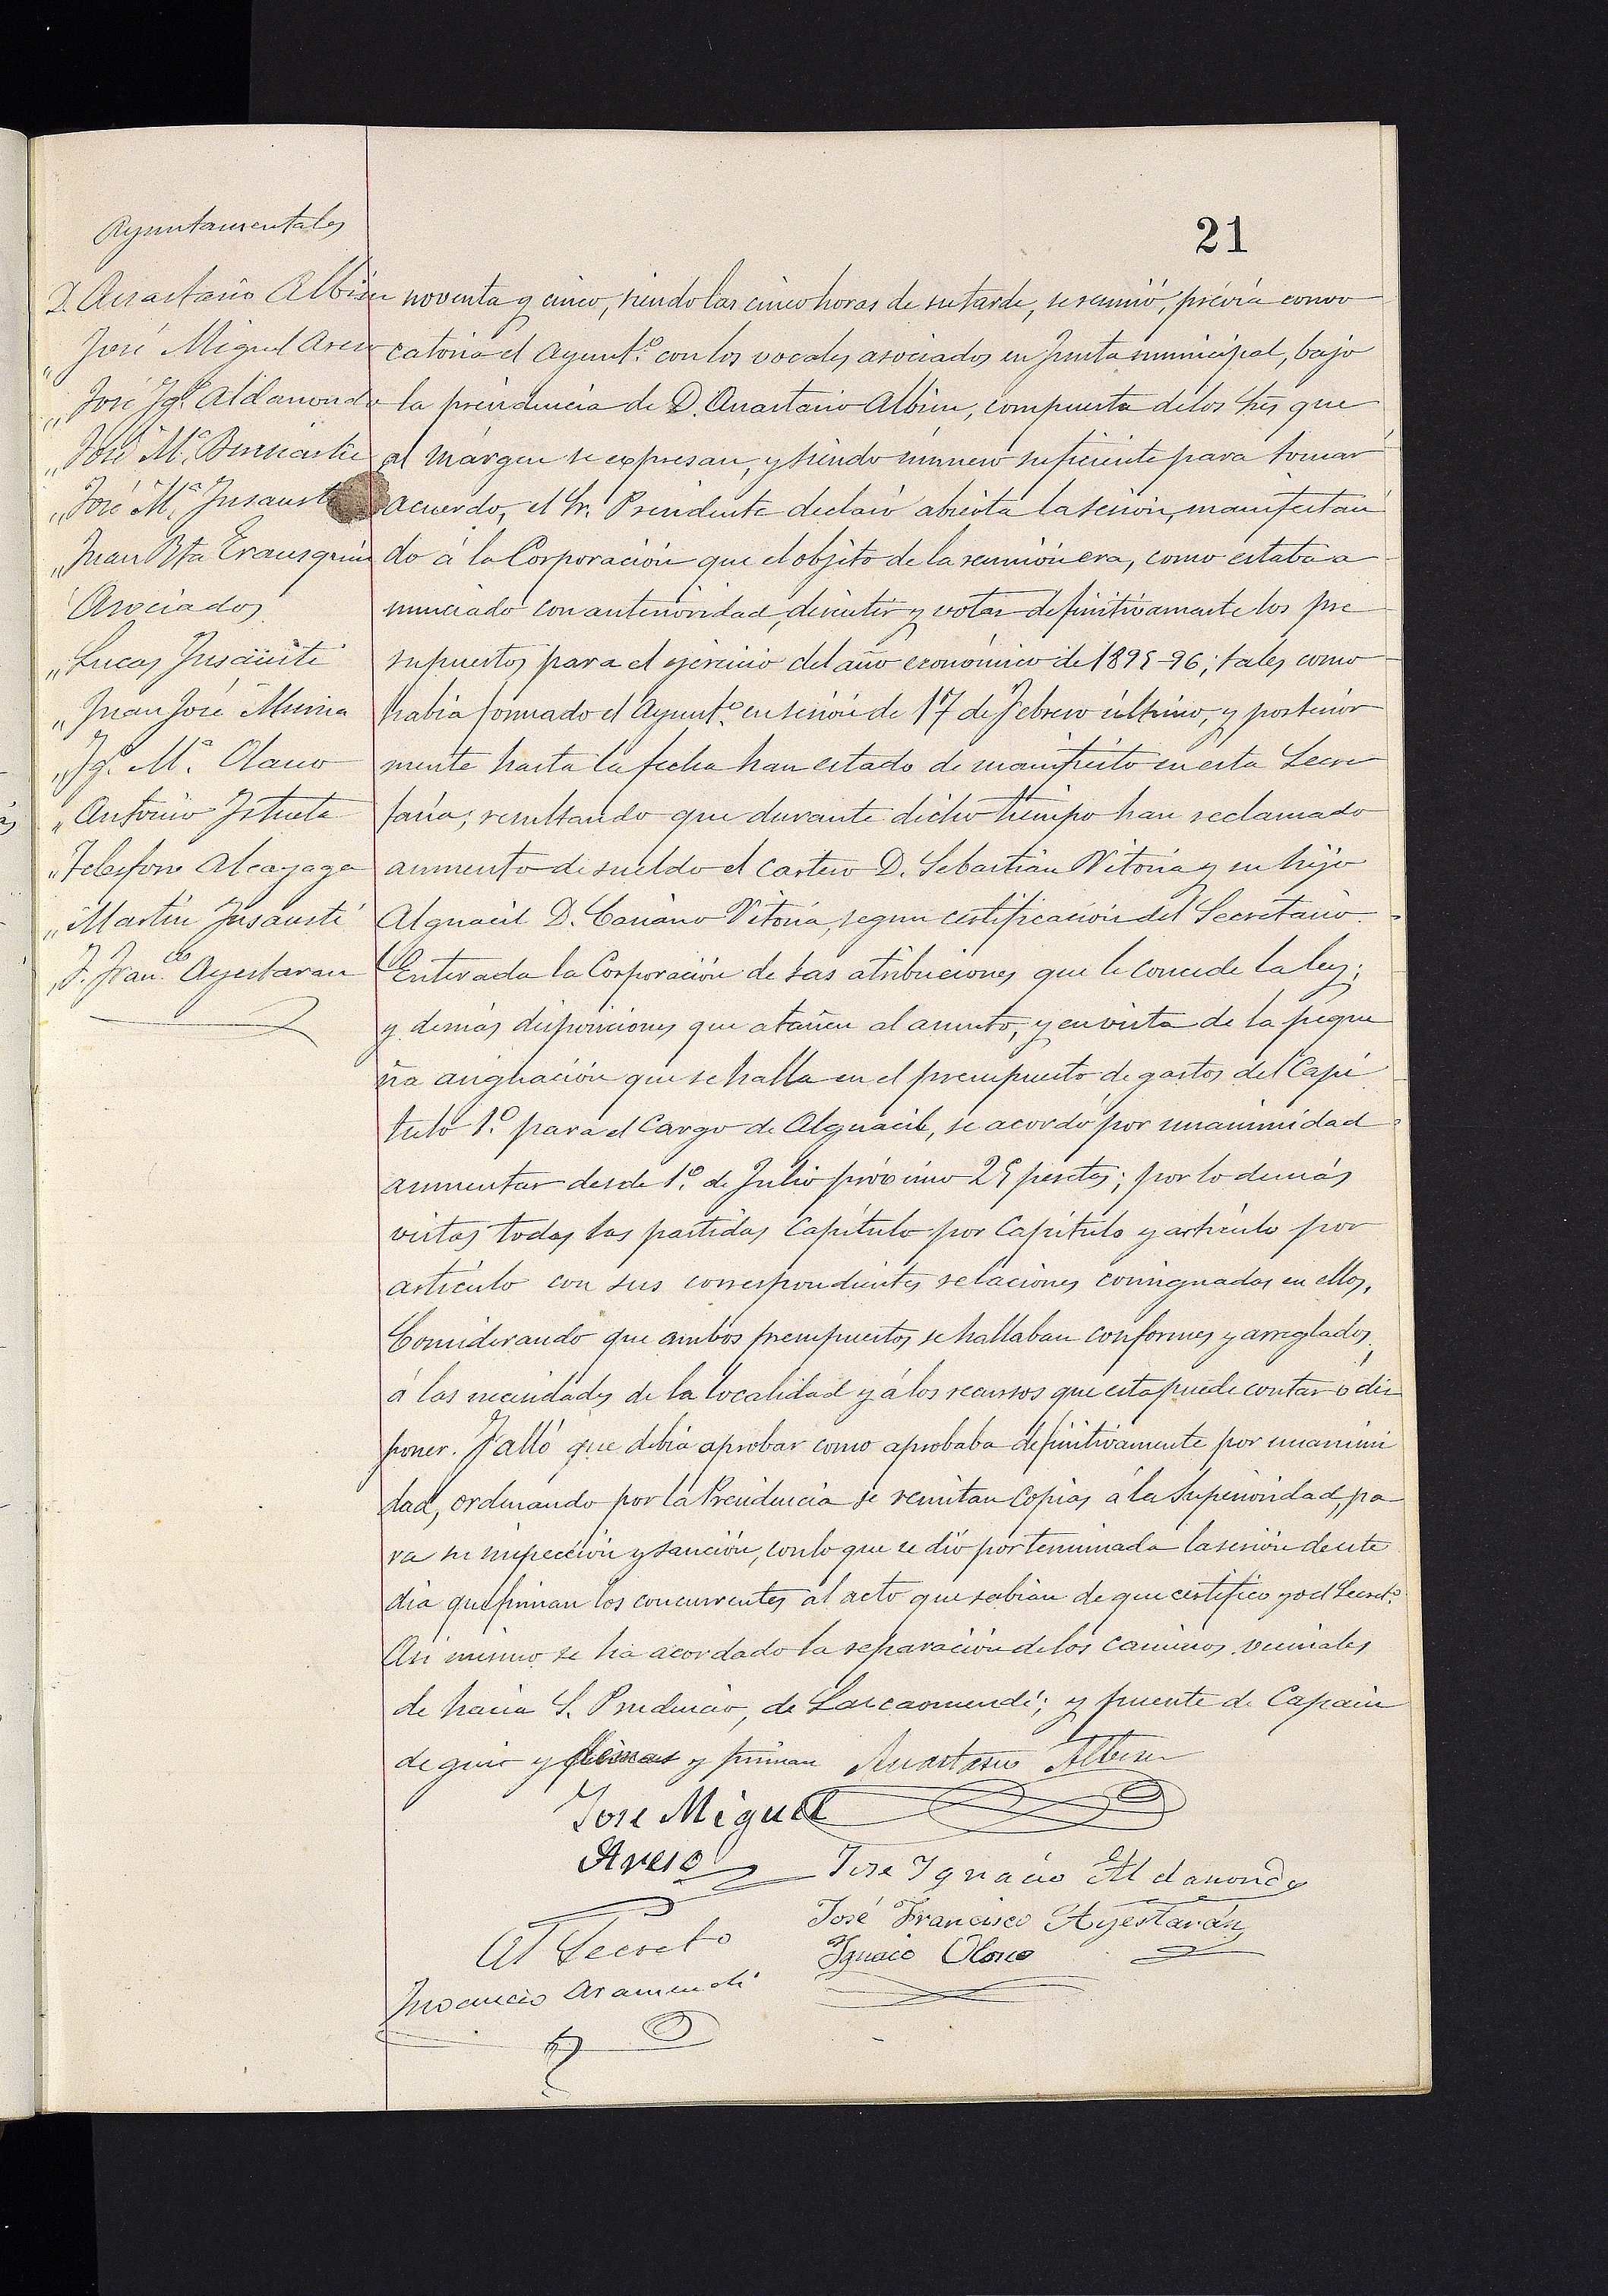 21
Ayuntamentales
D. Anastasio Albisu
" José Miguel Areso
" José Igº Aldanondo
" José Mª
" José Mª Insausti
" Juan Bta Erausquin
Asociados
" Lucas Insausti
" Juan José Munia
" Igº Mª Olano
" Antonio Iztueta
" Telesforo Alcayaga
" Martin Insausti
" J. Franco Ayestaran
noventa y cinco, siendo las cinco horas de su tarde, se reunió, prévia convo
catoria el Ayuntº con los vocales asociados en Junta municipal, bajo
la presidencia de D. Anastasio Albisu, compuesta de los Sres que
al márgen se expresan, y siendo número suficiente para tomar
acuerdo, el Sr. Presidente declaró abierta la sesión, manifestan
do á la Corporación que el objeto de la reunión era, como estaba a
nunciado con anterioridad, discutir y votar definitivamente los pre
supuestos para el ejercicio del año económico de 1895-96; tales como
habia formado el Ayuntº en sesión de 17 de Febrero último, y posterior
mente hasta la fecha han estado de manifiesto en esta Secre
taria; resultando que durante dicho tiempo han reclamado
aumento de sueldo el cartero D. Sebastián Vitoria y su hijo
Alguacil D. Vitoria, segun certificación del Secretario.
Enterada la Corporación de las atribuciones que le concede la ley;
y demás disposiciones que atañen al asunto, y en vista de la peque
ña asignación que se halla en el presupuesto de gastos del Capi
tulo 1º para el Cargo de Alguacil, se acordó por unanimidad
aumentar desde 1º de Julio próximo 25 pesetas; por lo demás
vistas todas las partidas Capitulo por Capitulo y articulo por
articulo con sus correspondientes relaciones consignadas en ellos,
Considerando que ambos presupuestos se hallaban conformes y arreglados
á las necesidades de la localidad y á los recursos que esta puede contar ó dis
poner. Falló que debia aprobar como aprobaba definitivamente por unanimi
dad, ordenando por la Presidencia se remitan copias á la Superioridad, pa
ra su inspección y sanción, con lo que se dió por terminada la sesión de este
dia que firman los concurrentes al acto que sabian de que certifico yo el Secretº
Asi mismo se ha acordado la reparación de los caminos vecinales
de hacia S. Prudencio, de Lazcaomendi; y puente de Capain
de guir y y firman Anastasio Albisu
Jose Miguel
Areso
Jose Ignacio Aldanondo
José Francisco Ayestarán
Ignacio Olano
El Secreto
Inocencio Aramendi